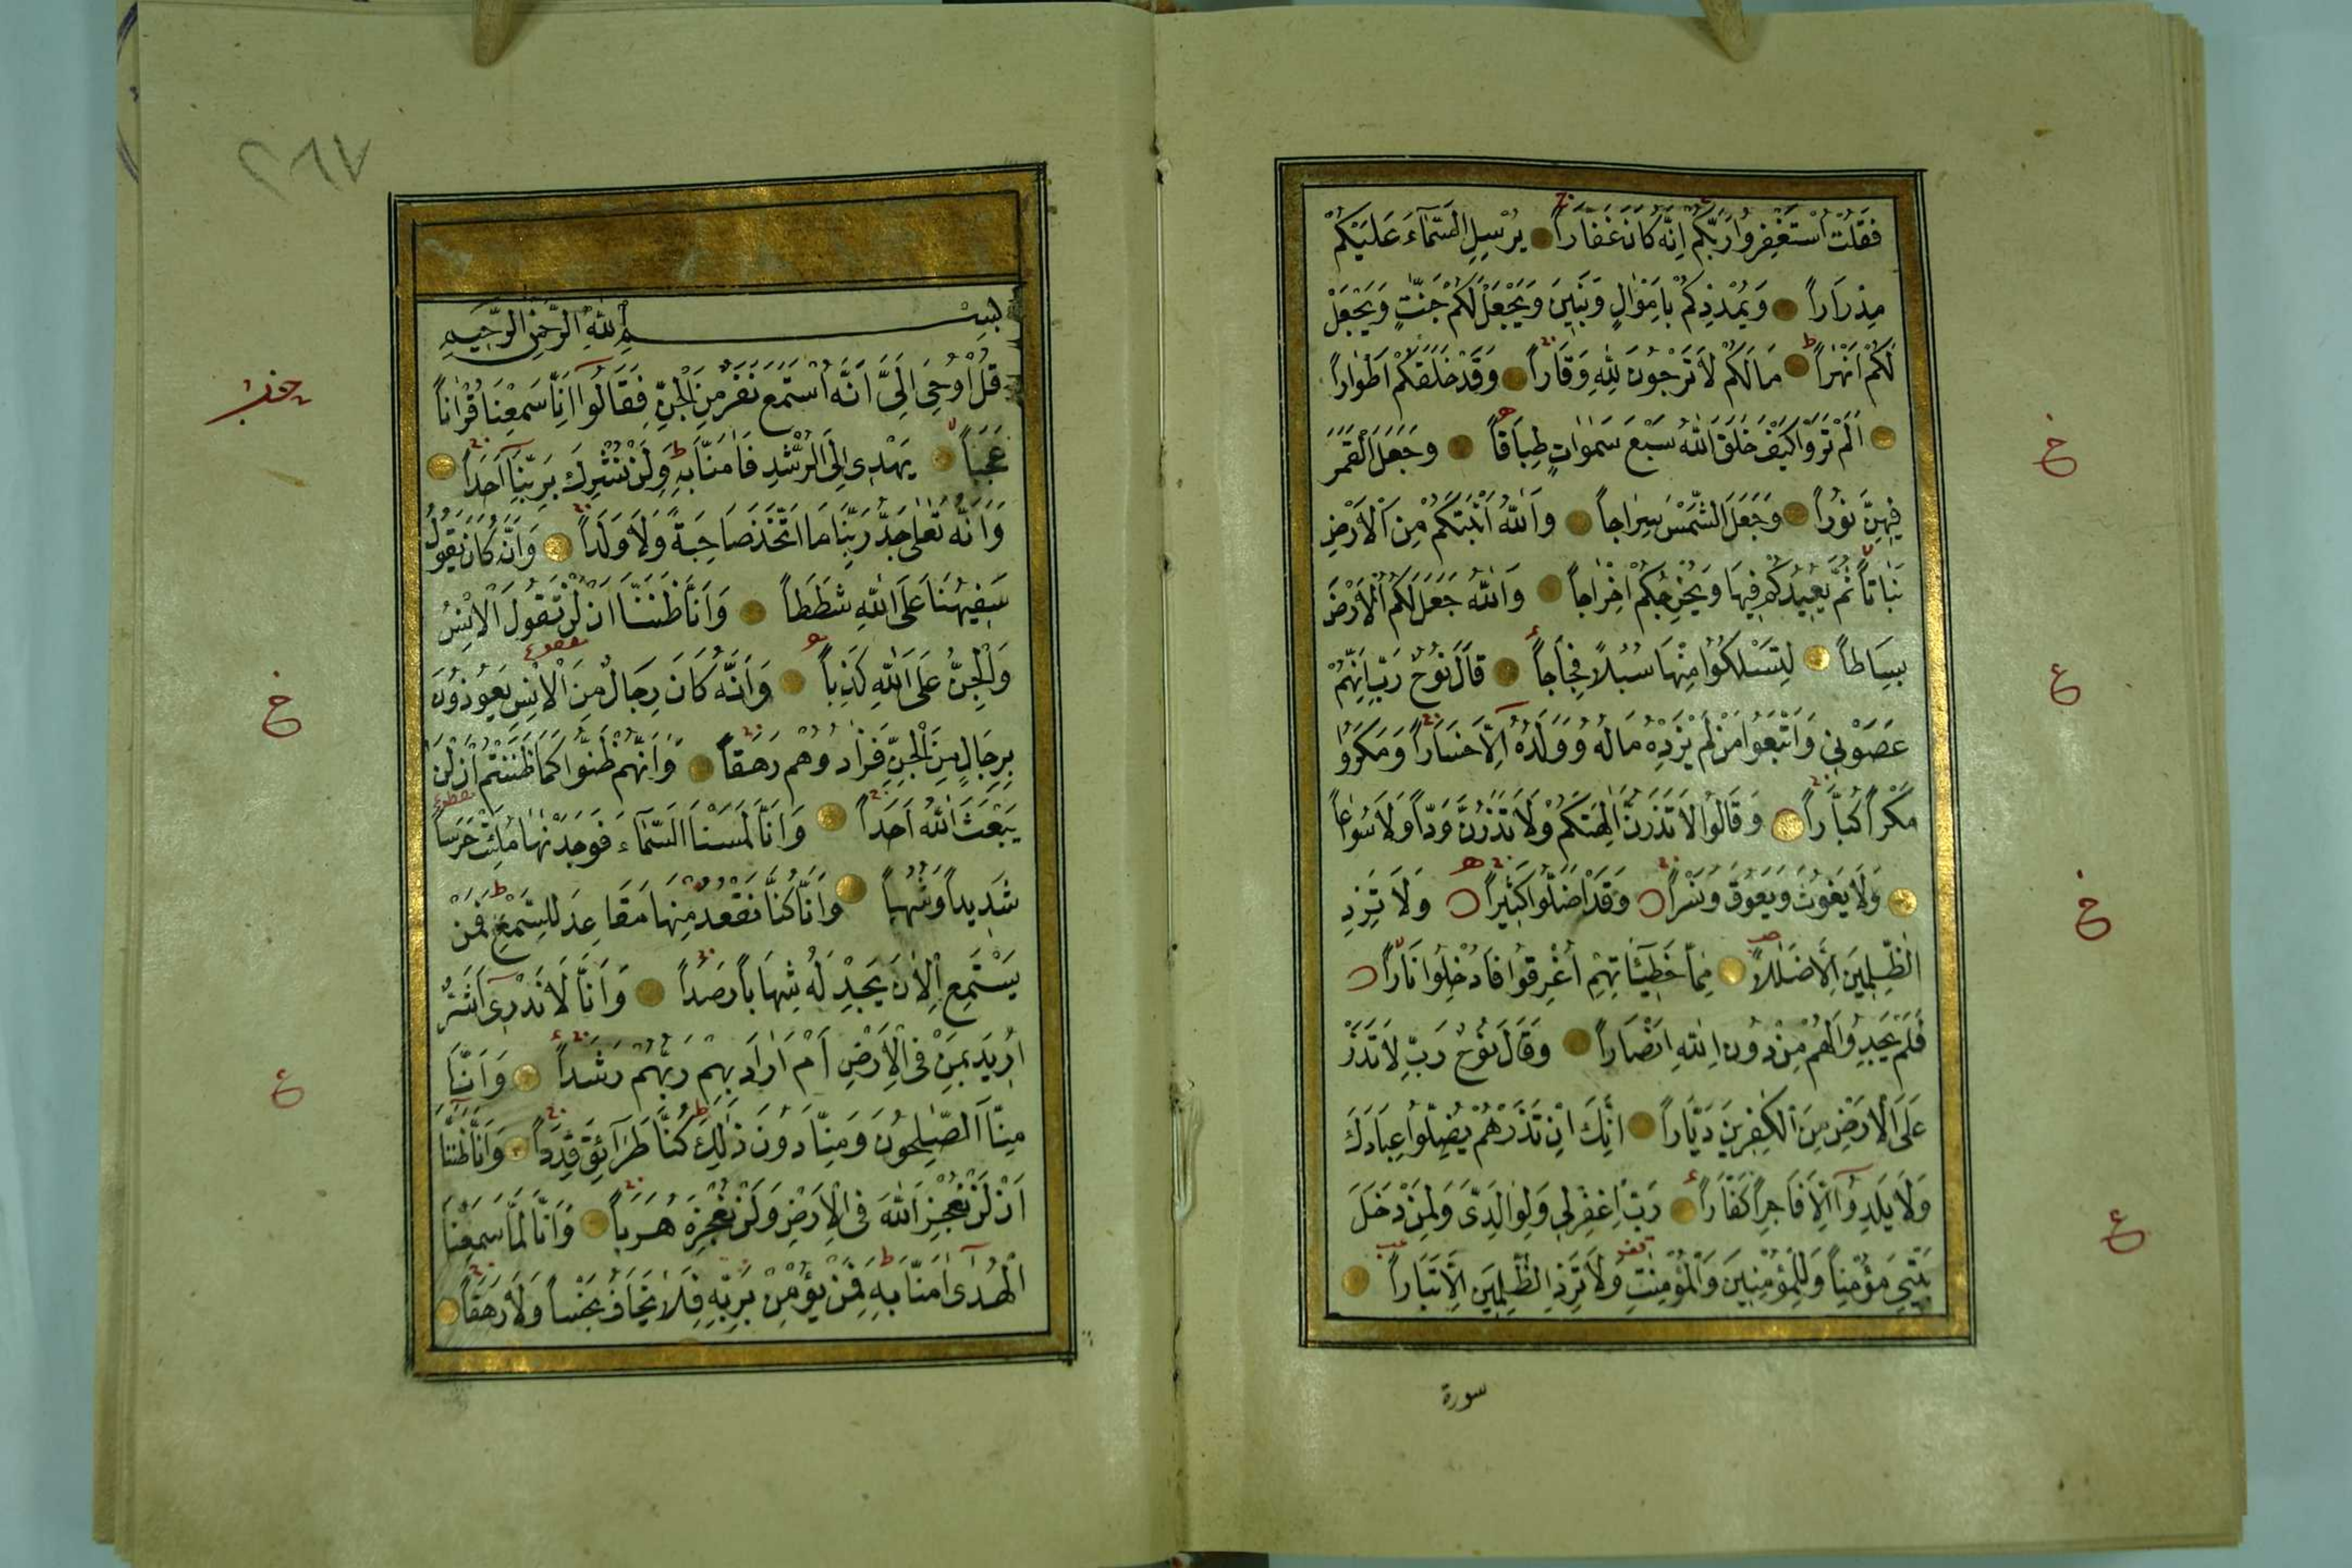 فَقُلْتُ اسْتَغْفِرُوا رَبَّكُمْ اِنَّهُ كَانَ غَفَّاراً يُرْسِلِ السَّمَآءَ عَلَيْكُمْ
مِدْرَاراً وَيُمْدِدْكُمْ بِاَمْوَالٍ وَبَنِينَ وَيَجْعَلْ لَكُمْ جَنّٰتٍ وَيَجْعَلْ
لَكُمْ اَنْهٰراً مَالَكُمْ لَا تَرْجُونَ لِلّٰهِ وَقَاراً وَقَدْ خَلَقَكُمْ اَطْوَاراً
اَلَمْ تَرَوْا كَيْفَ خَلَقَ اللّٰهُ سَبْعَ سَمٰوَاتٍ طِبَاقاً وَجَعَلَ الْقَمَرَ
فِيهِنَّ نُوراً وَجَعَلَ الشَّمْسَ سِرَاجاً وَاللّٰهُ اَنْبَتَكُمْ مِنَ الْاَرْضِ
نَبَاتاً ثُمَّ يُعِيدُكُمْ فِيهَا وَيُخْرِجُكُمْ اِخْرَاجاً وَاللّٰهُ جَعَلَ لَكُمُ الْاَرْضَ
بِسَاطاً لِتَسْلُكُوا مِنْهَا سُبُلاً فِجَاجاً قَالَ نُوحٌ رَبِّ اِنَّهُمْ
عَصَوْنِي وَاتَّبَعُوا مَنْ لَمْ يَزِدْهُ مَالُهُ وَوَلَدُهُ اِلَّا خَسَاراً وَمَكَرُوا
مَكْراً كُبَّاراً وَقَالُوا لَا تَذَرُنَّ اٰلِهَتَكُمْ وَلَا تَذَرُنَّ وَدّاً وَلَا سُوَاعاً
وَلَا يَغُوثَ وَيَعُوقَ وَنَسْراً وَقَدْ اَضَلُّوا كَثِيراً وَلَا تَزِدِ
الظّٰلِمِينَ اِلَّا ضَلٰلاً مِمَّا خَطِيئَاتِهِمْ اُغْرِقُوا فَاُدْخِلُوا نَاراً
فَلَمْ يَجِدُوا لَهُمْ مِنْ دُونِ اللّٰهِ اَنْصَاراً وَقَالَ نُوحٌ رَبِّ لَا تَذَرْ
عَلَى الْاَرْضِ مِنَ الْكٰفِرِينَ دَيَّاراً اِنَّكَ اِنْ تَذَرْهُمْ يُضِلُّوا عِبَادَكَ
وَلَا يَلِدُوا اِلَّا فَاجِراً كَفَّاراً رَبِّ اغْفِرْلِي وَلِوَالِدَيَّ وَلِمَنْ دَخَلَ
بَيْتِيَ مُؤْمِناً وَلِلْمُؤْمِنِينَ وَالْمُؤْمِنٰتِ وَلَا تَزِدِ الظّٰلِمِينَ اِلَّا تَبَاراً
سورة
٢٦٧
بِسْمِ اللّٰهِ الرَّحْمٰنِ الرَّحِيمِ
قُلْ اُوحِيَ اِلَيَّ اَنَّهُ اسْتَمَعَ نَفَرٌ مِنَ الْجِنِّ فَقَالُوا اِنَّا سَمِعْنَا قُرْاٰناً
عَجَباً يَهْدِي اِلَى الرُّشْدِ فَاٰمَنَّا بِهِ وَلَنْ نُشْرِكَ بِرَبِّنَا اَحَداً
وَاَنَّهُ تَعٰلٰى جَدُّ رَبِّنَا مَا اتَّخَذَ صَاحِبَةً وَلَا وَلَداً وَاَنَّهُ كَانَ يَقُولُ
سَفِيهُنَا عَلَى اللّٰهِ شَطَطاً وَاَنَّا ظَنَنَّا اَنْ لَنْ تَقُولَ الْاِنْسُ
وَالْجِنُّ عَلَى اللّٰهِ كَذِباً وَاَنَّهُ كَانَ رِجَالٌ مِنَ الْاِنْسِ يَعُوذُونَ
بِرِجَالٍ مِنَ الْجِنِّ فَزَادُوهُمْ رَهَقاً وَاَنَّهُمْ ظَنُّوا كَمَا ظَنَنْتُمْ اَنْ لَنْ
يَبْعَثَ اللّٰهُ اَحَداً وَاَنَّا لَمَسْنَا السَّمَآءَ فَوَجَدْنٰهَا مُلِئَتْ حَرَساً
شَدِيداً وَشُهُباً وَاَنَّا كُنَّا نَقْعُدُ مِنْهَا مَقَاعِدَ لِلسَّمْعِ فَمَنْ
يَسْتَمِعِ الْاٰنَ يَجِدْ لَهُ شِهَاباً رَصَداً وَاَنَّا لَا نَدْرِي اَشَرٌّ
اُرِيدَ بِمَنْ فِي الْاَرْضِ اَمْ اَرَادَ بِهِمْ رَبُّهُمْ رَشَداً وَاَنَّا
مِنَّا الصّٰلِحُونَ وَمِنَّا دُونَ ذٰلِكَ كُنَّا طَرَآئِقَ قِدَداً وَاَنَّا ظَنَنَّا
اَنْ لَنْ نُعْجِزَ اللّٰهَ فِي الْاَرْضِ وَلَنْ نُعْجِزَهُ هَرَباً وَاَنَّا لَمَّا سَمِعْنَا
الْهُدٰى اٰمَنَّا بِهِ فَمَنْ يُؤْمِنْ بِرَبِّهِ فَلَا يَخَافُ بَخْساً وَلَا رَهَقاً